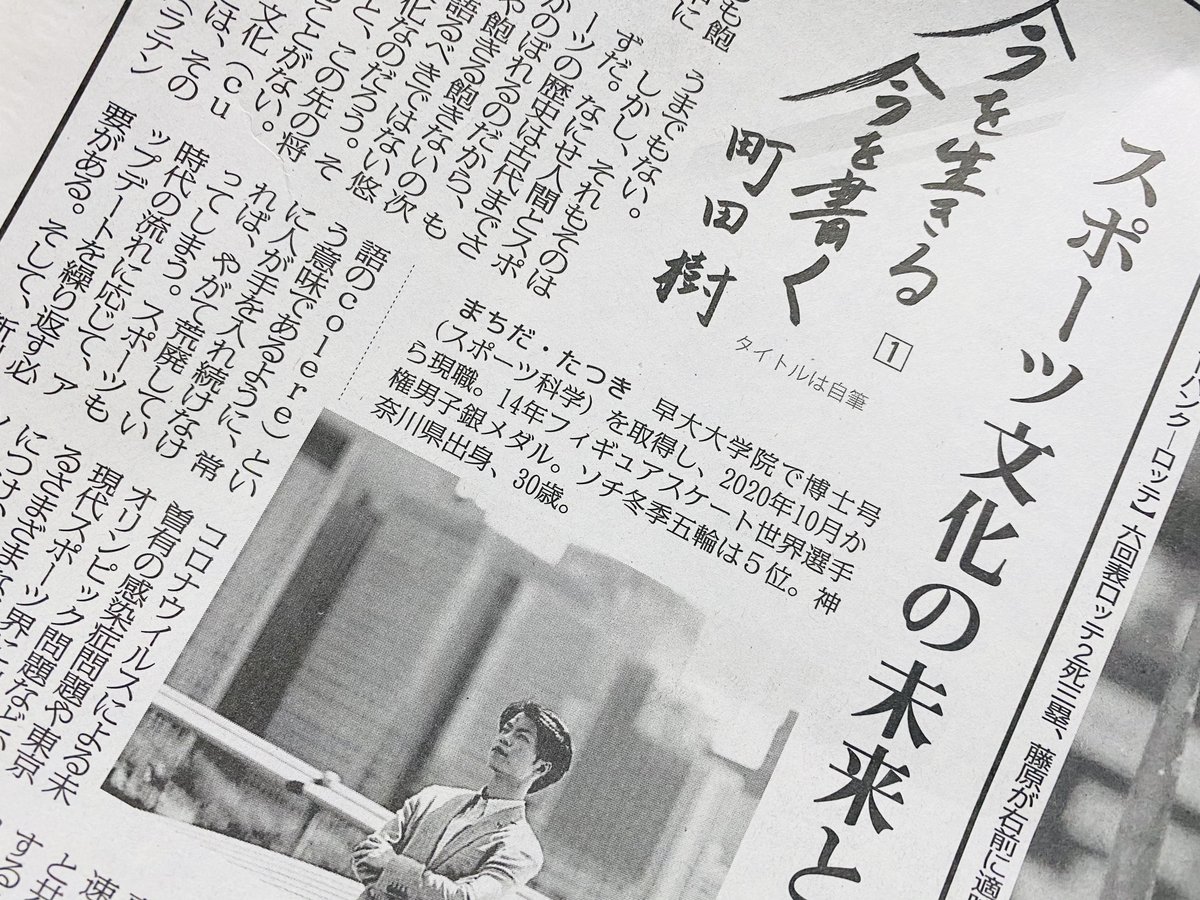 バンクーロッテ】六回表ロッテ2死三塁、藤原が右前に適
スポーツ文化の未来と
今を生きる
今を書く
町田 樹
1
タイトルは自筆
まちだ・たつき　早大大学院で博士号
（スポーツ科学）を取得し、2020年10月か
ら現職。14年フィギュアスケート世界選手
権男子銀メダル。ソチ冬季五輪は5位。神
奈川県出身、30歳。
も飽
に
うまでもない。
しかし、それもそのは
ずだ。なにせ人間とスポ
ーツの歴史は古代までさ
かのぼれるのだから、も
や飽きる飽きないの次
語るべきではない悠
化なのだろう。そ
と、この先の将
ことがない。
文化（cu
ほ、その
ラテン
語のcolere）とい
う意味であるように、常
に人が手を入れ続けなけ
れば、やがて荒廃してい
ってしまう。スポーツも
時代の流れに応じて、ア
ップデートを繰り返す必
要がある。そして、
コロナウイルスによる未
曽有の感染症問題や東京
オリンピック問題など、
現代スポーツ界に
るさまざまな